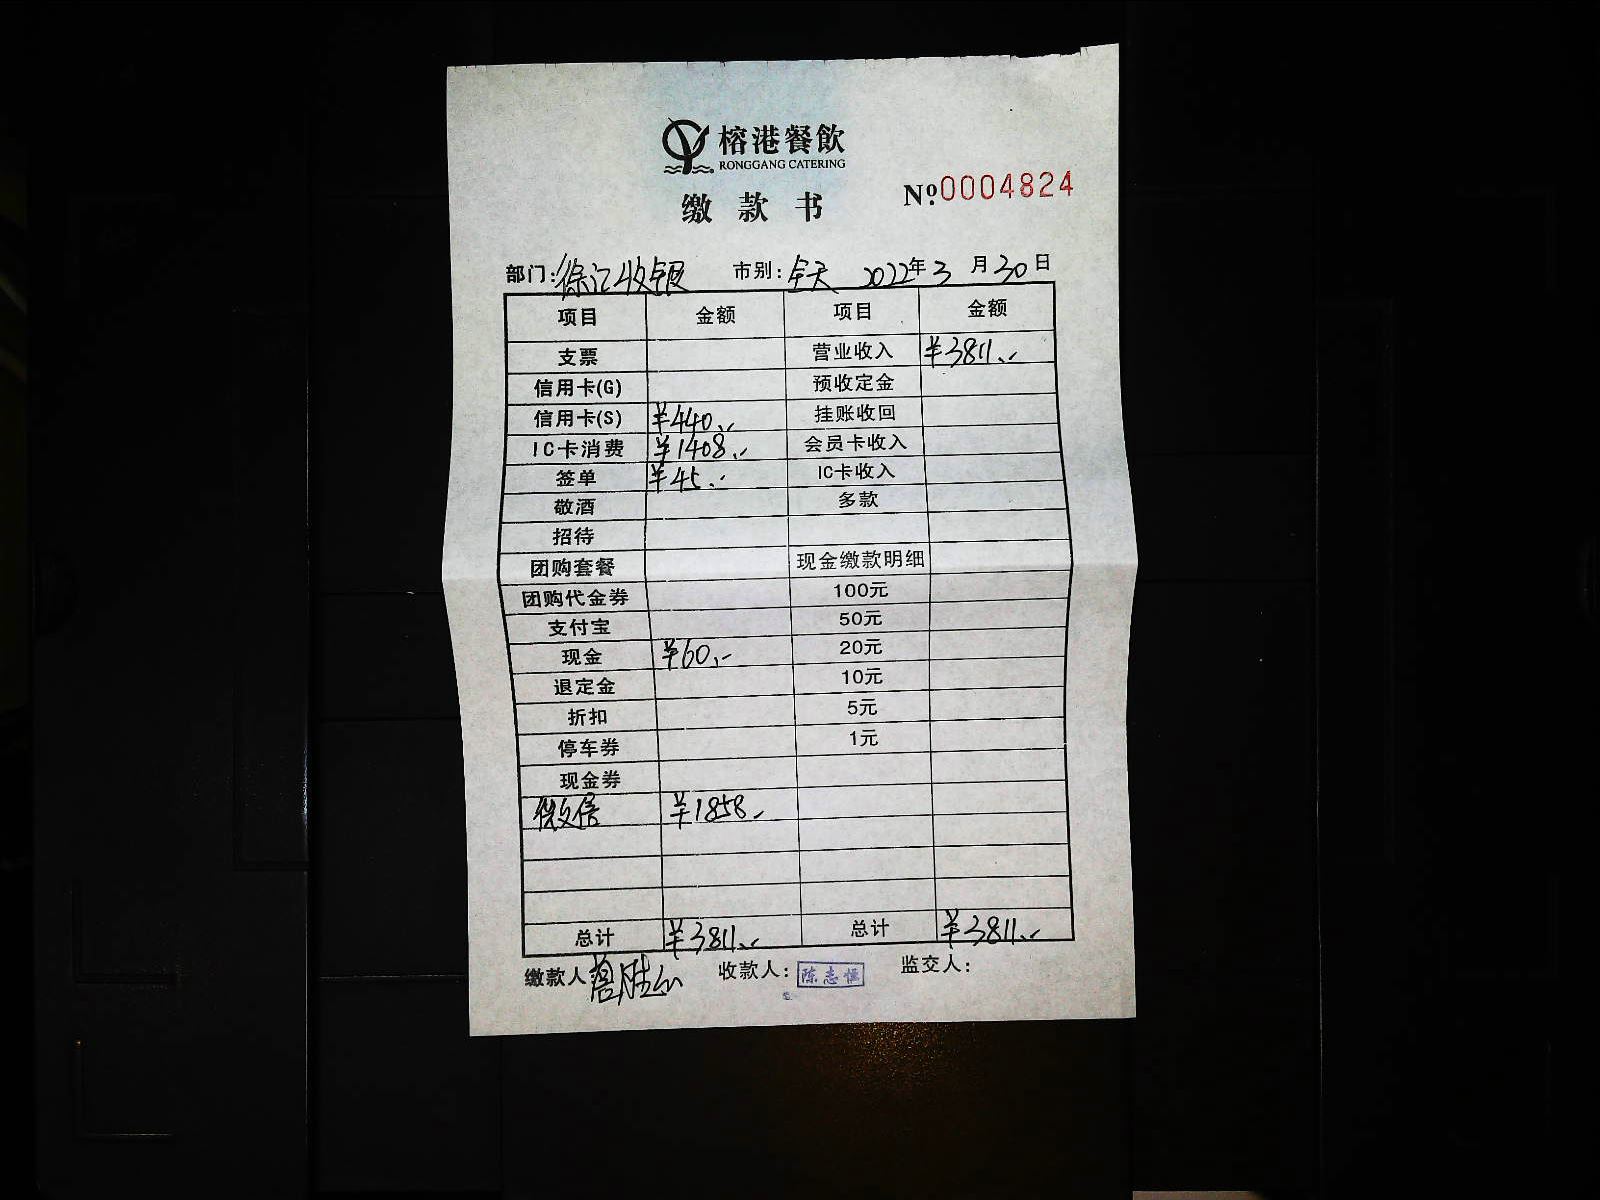 榕港餐飲
RONGGANG CATERING
缴款书
№0004824
部门:徐汇收银 市别:全天 2022年3月30日
项目 金额 项目 金额
支票 营业收入 ¥3811.-
信用卡(G) 预收定金
信用卡(S) ¥440.- 挂账收回
IC卡消费 ¥1408.- 会员卡收入
签单 ¥45.- IC卡收入
敬酒 多款
招待
团购套餐 现金缴款明细
团购代金券 100元
支付宝 50元
现金 ¥60.- 20元
退定金 10元
折扣 5元
停车券 1元
现金券
微信 ¥1858.-
总计 ¥3811.- 总计 ¥3811.-
缴款人 收款人:陈志恒 监交人: